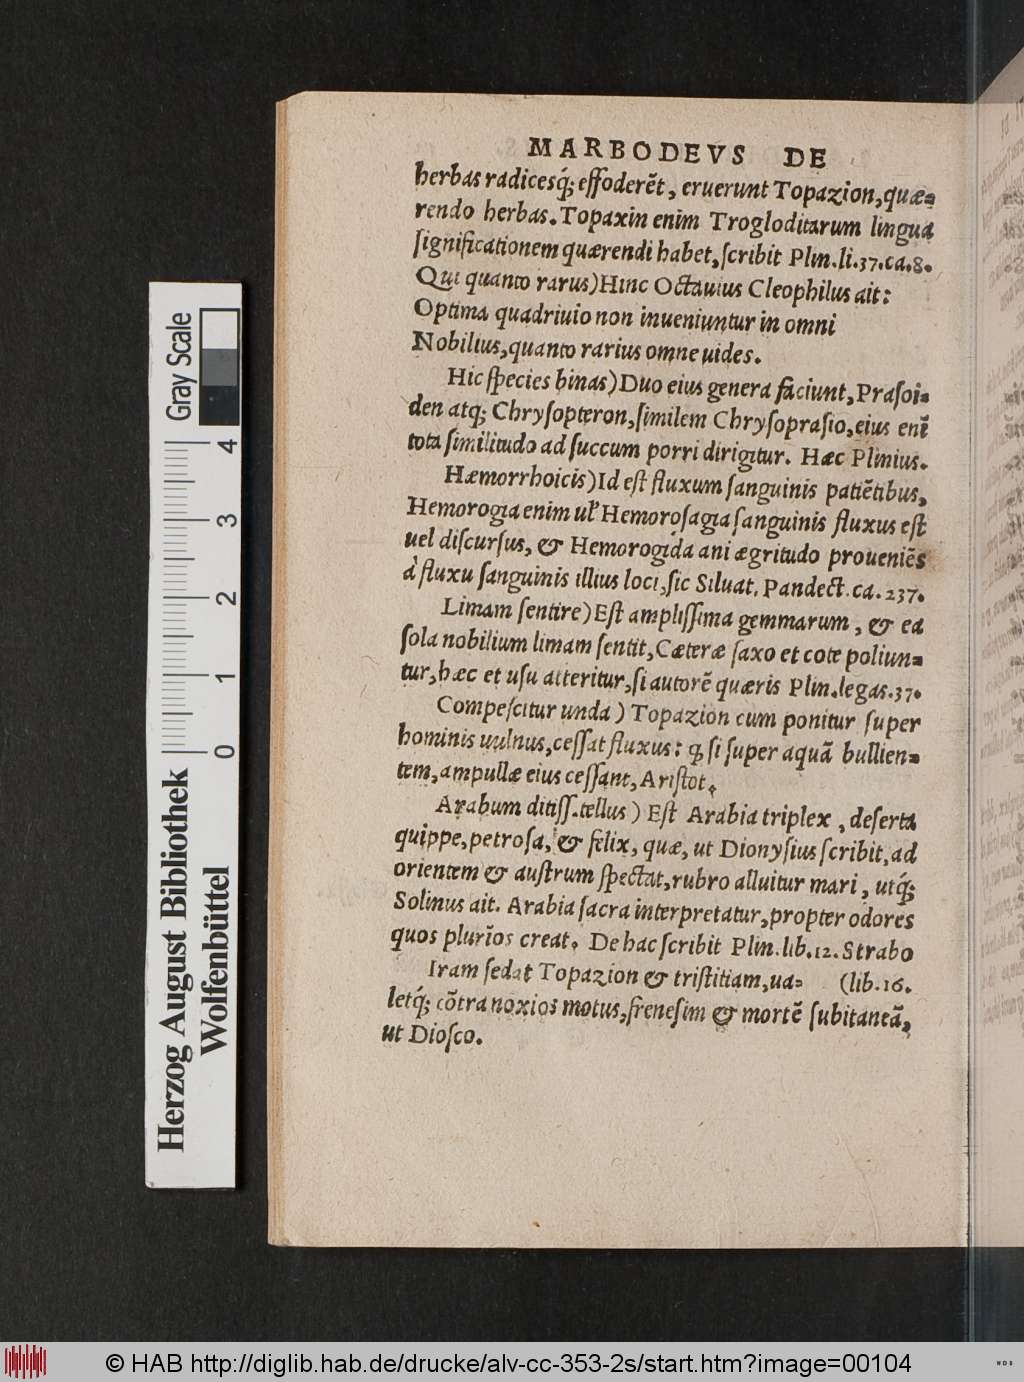 MARBODEVS DE
herbas radicesq́; effoderēt, eruerunt Topazion, quæ-
rendo herbas. Topaxin enim Trogloditarum lingua
ſignificationem quærendi habet, ſcribit Plin. li. 37. ca. 8.
Qui quanto rarus) Hinc Octauius Cleophilus ait:
Optima quadriuio non inueniuntur in omni
Nobilius, quanto rarius omne uides.
Hic ſpecies binas) Duo eius genera faciunt, Praſoi-
den atq; Chryſopteron, ſimilem Chryſopraſio, eius enī
tota ſimilitudo ad ſuccum porri dirigitur. Hæc Plinius.
Hæmorrhoicis) Id eſt fluxum ſanguinis patiētibus,
Hemorogia enim ul' Hemoroſagia ſanguinis fluxus eſt
uel diſcurſus, & Hemorogida ani ægritudo proueniēs
à fluxu ſanguinis illius loci, ſic Siluat. Pandect. ca. 237.
Limam ſentire) Eſt ampliſſima gemmarum, & ea
ſola nobilium limam ſentit, Cæteræ ſaxo et cote poliun-
tur, hæc et uſu atteritur, ſi autorē quæris Plin. legas. 37.
Compeſcitur unda) Topazion cum ponitur ſuper
hominis uulnus, ceſſat fluxus: q̃ ſi ſuper aquā bullien-
tem, ampullæ eius ceſſant, Ariſtot.
Arabum ditiſſ. tellus) Eſt Arabia triplex, deſerta
quippe, petroſa, & felix, quæ, ut Dionyſius ſcribit, ad
orientem & auſtrum ſpectat, rubro alluitur mari, utq́;
Solinus ait. Arabia ſacra interpretatur, propter odores
quos plurīos creat. De hac ſcribit Plin. lib. 12. Strabo
Iram ſedat Topazion & triſtitiam, ua- (lib. 16.
letq́; cōtra noxios motus, freneſim & mortē ſubitaneā,
ut Dioſco.
Herzog August Bibliothek
Wolfenbüttel
0 1 2 3 4
Gray Scale
© HAB http://diglib.hab.de/drucke/alv-cc-353-2s/start.htm?image=00104